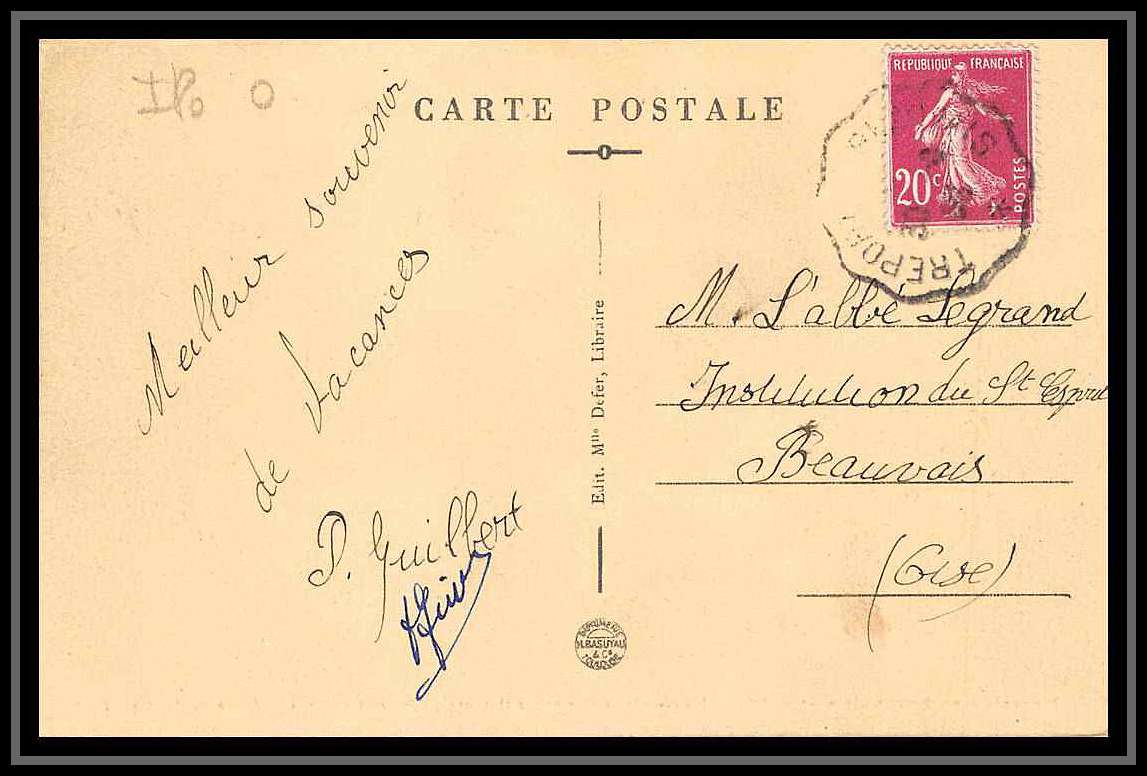 CARTE POSTALE
Meilleur souvenir
de vacances
P. Guilbert
Edit. Mlle Defer, Libraire
REPUBLIQUE FRANÇAISE
20c
POSTES
TREPORT
M. L'abbé Legrand
Institution du St Esprit
Beauvais
(Oise)
& Cie
TOULOUSE